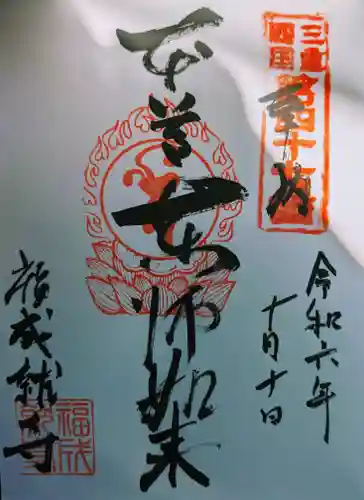 三重
四国
奉拝
令和六年
十月十日
本尊
薬師如来
福成就寺
福成
就寺